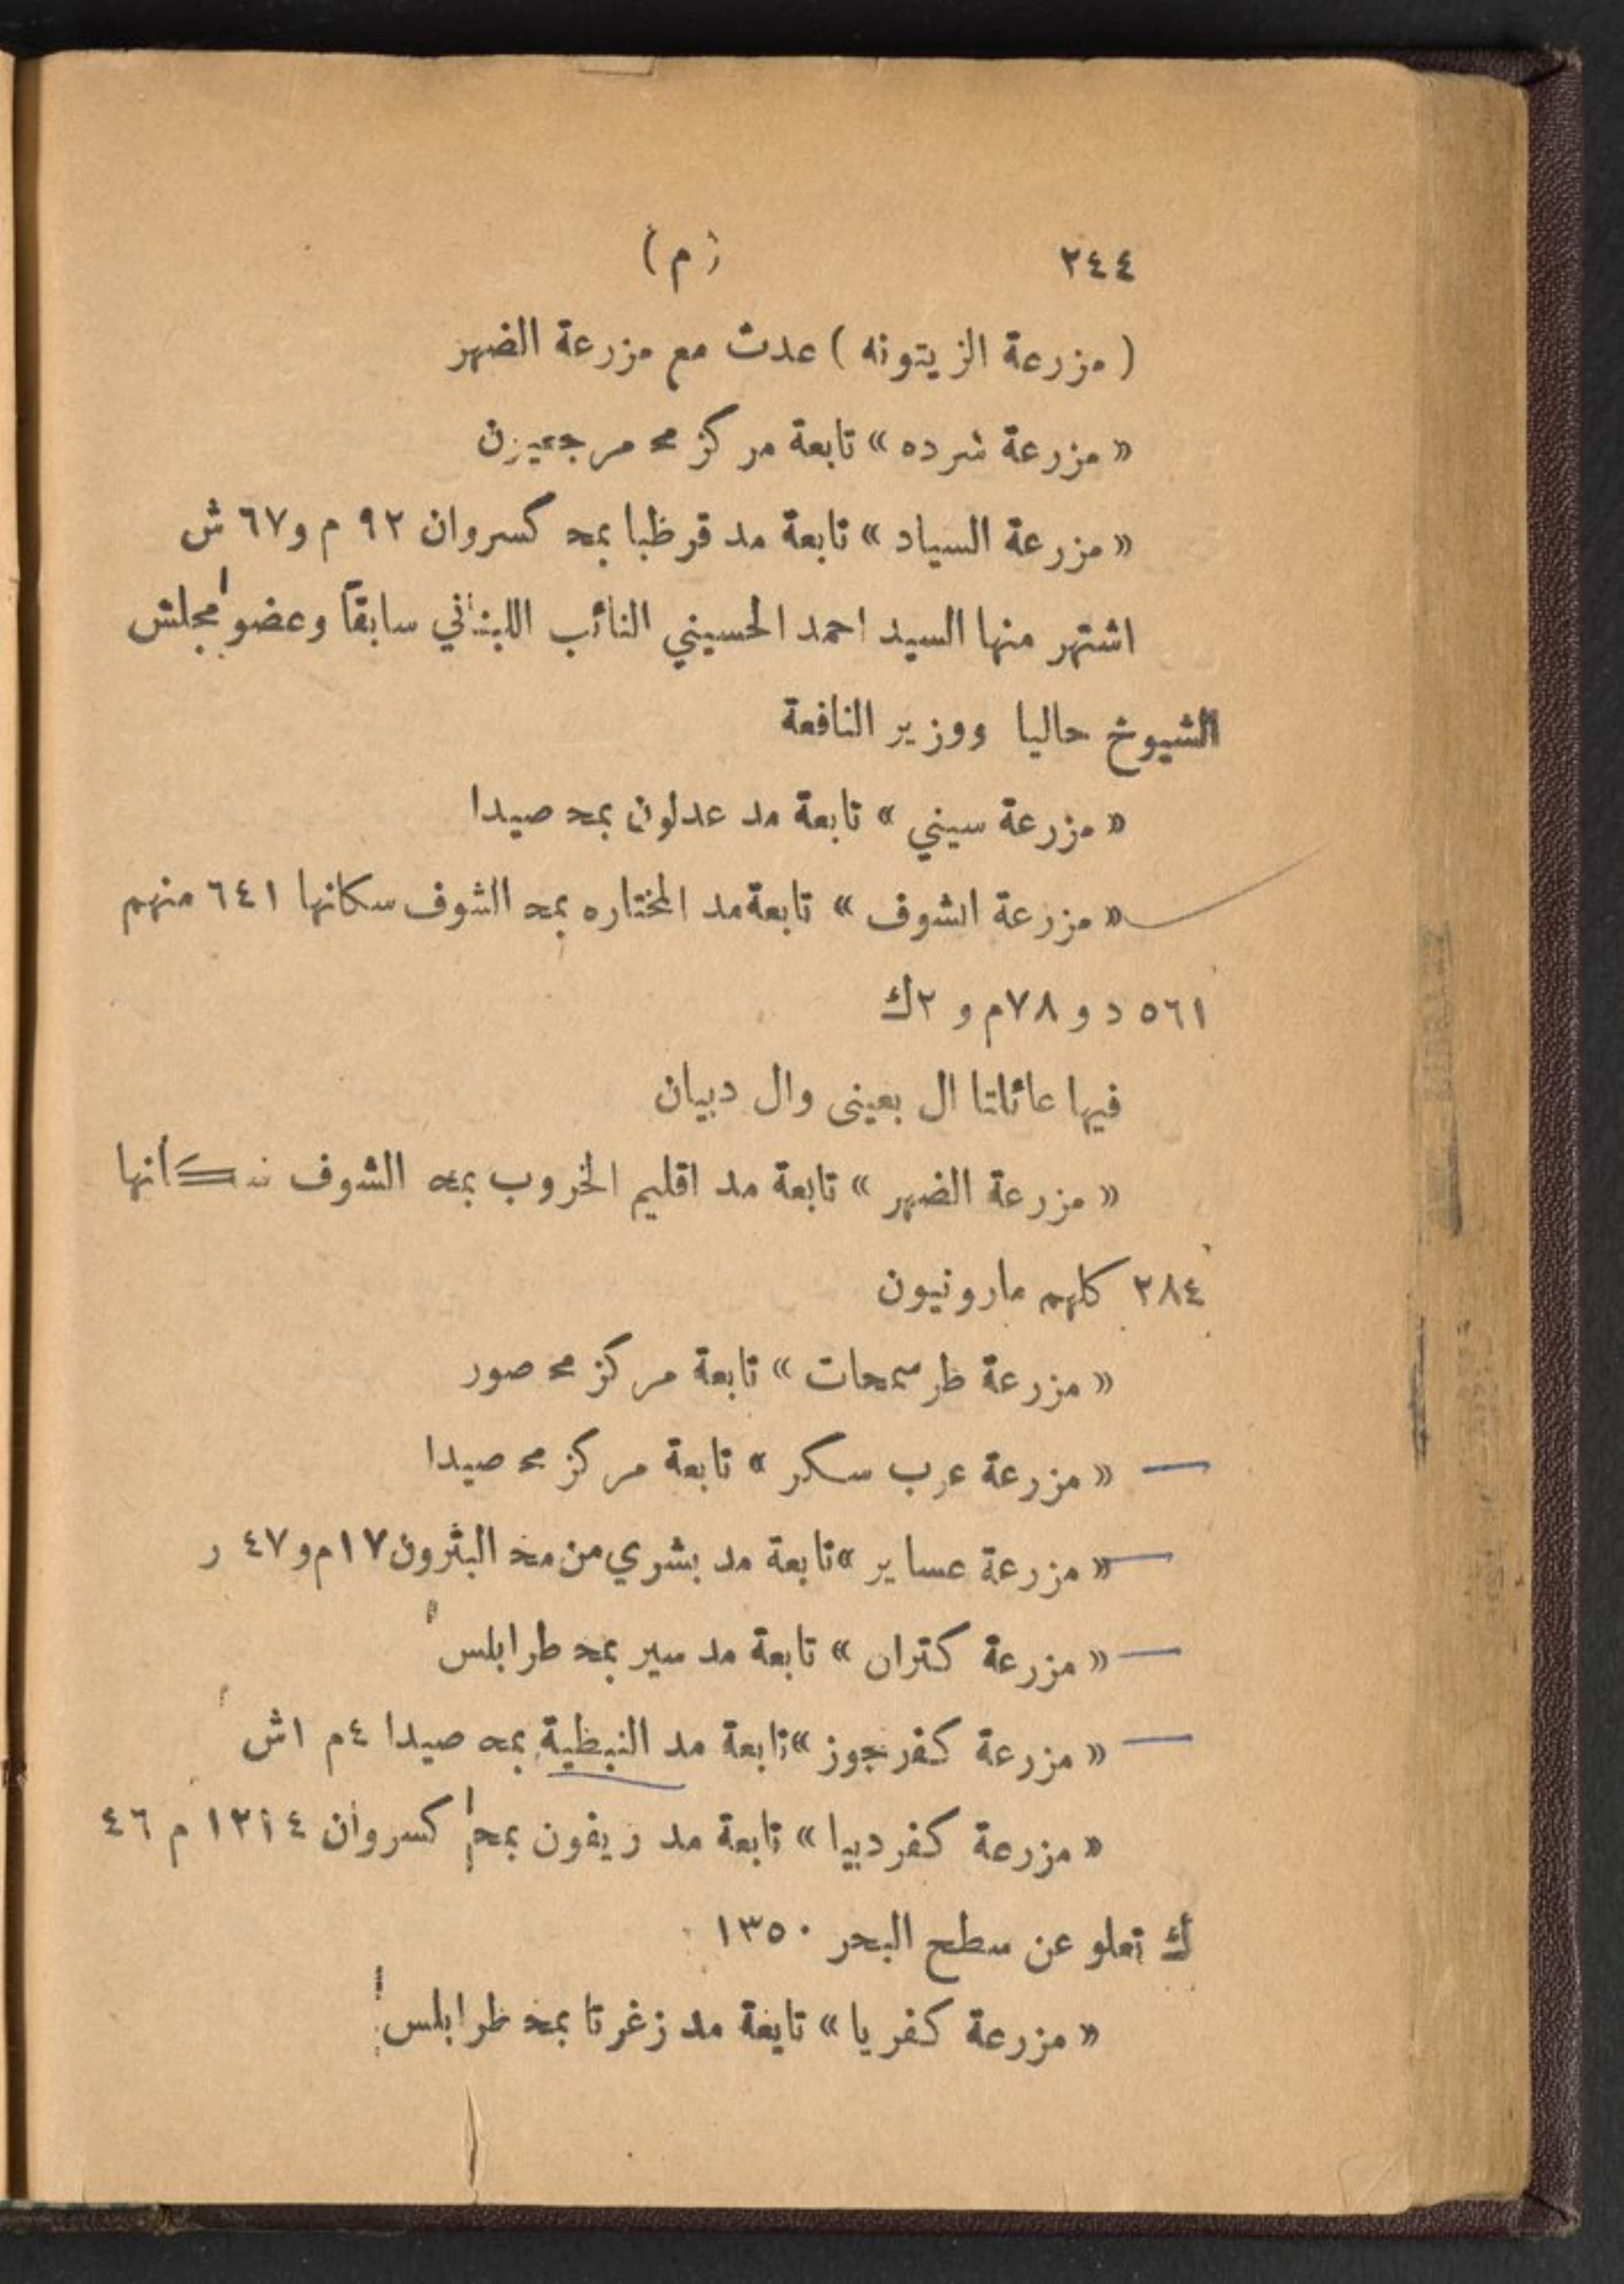 ٢٤٤ (م)
( مزرعة الزيتونه ) عدث مع مزرعة الضهر
« مزرعة شرده » تابعة مركز مح مرجعيون
« مزرعة السياد » تابعة مد قرظبا بمحـ كسروان ٩٢ م و٦٧ ش
اشتهر منها السيد احمد الحسيني النائب اللبناني سابقاً وعضو مجلش
الشيوخ حاليا ووزير النافعة
« مزرعة سيني » تابعة مد عدلون بمحـ صيدا
« مزرعة الشوف » تابعة مد المختاره بمحـ الشوف سكانها ٦٤١ منهم
٥٦١ د و ٧٨م و ٢ك
فيها عائلتا ال بعينى وال دبيان
« مزرعة الضهر » تابعة مد اقليم الخروب بمحـ الشوف سكانها
٢٨٤ كلهم مارونيون
« مزرعة ظرسمحات » تابعة مركز مح صور
« مزرعة عرب سكر » تابعة مركز مح صيدا
« مزرعة عساير » تابعة مد بشري من مخـ البثرون ١٧م و٤٧ ر
« مزرعة كتران » تابعة مد سير بمحـ طرابلس
« مزرعة كفرجوز » تابعة مد النبظية بمحـ صيدا ٤م ١ش
« مزرعة كفردبيا » تابعة مد ريفون بمحـ كسروان ١٢١٤ م ٤٦
ك تعلو عن سطح البحر ١٣٥٠
« مزرعة كفريا » تايعة مد زغرتا بمحـ ظرابلس